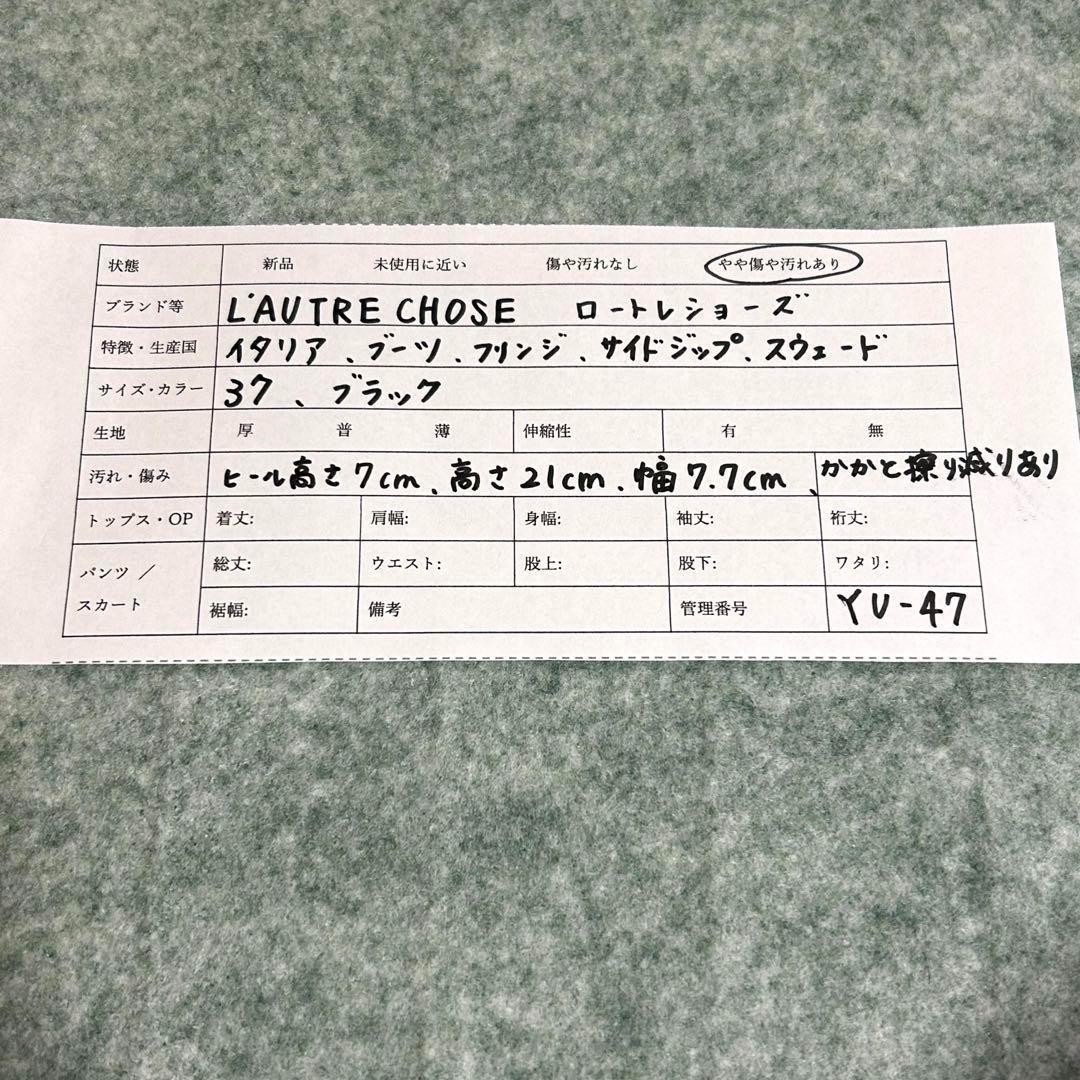 状態 新品 未使用に近い 傷や汚れなし やや傷や汚れあり
ブランド等 L'AUTRE CHOSE ロートレショーズ
特徴・生産国 イタリア、ブーツ、フリンジ、サイドジップ、スウェード
サイズ・カラー 37、ブラック
生地 厚 普 薄 伸縮性 有 無
汚れ・傷み ヒール高さ7cm、高さ21cm、幅7.7cm、かかと擦り減りあり
トップス・OP 着丈: 肩幅: 身幅: 袖丈: 裄丈:
パンツ/ 総丈: ウエスト: 股上: 股下: ワタリ:
スカート 裾幅: 備考 管理番号 YU-47